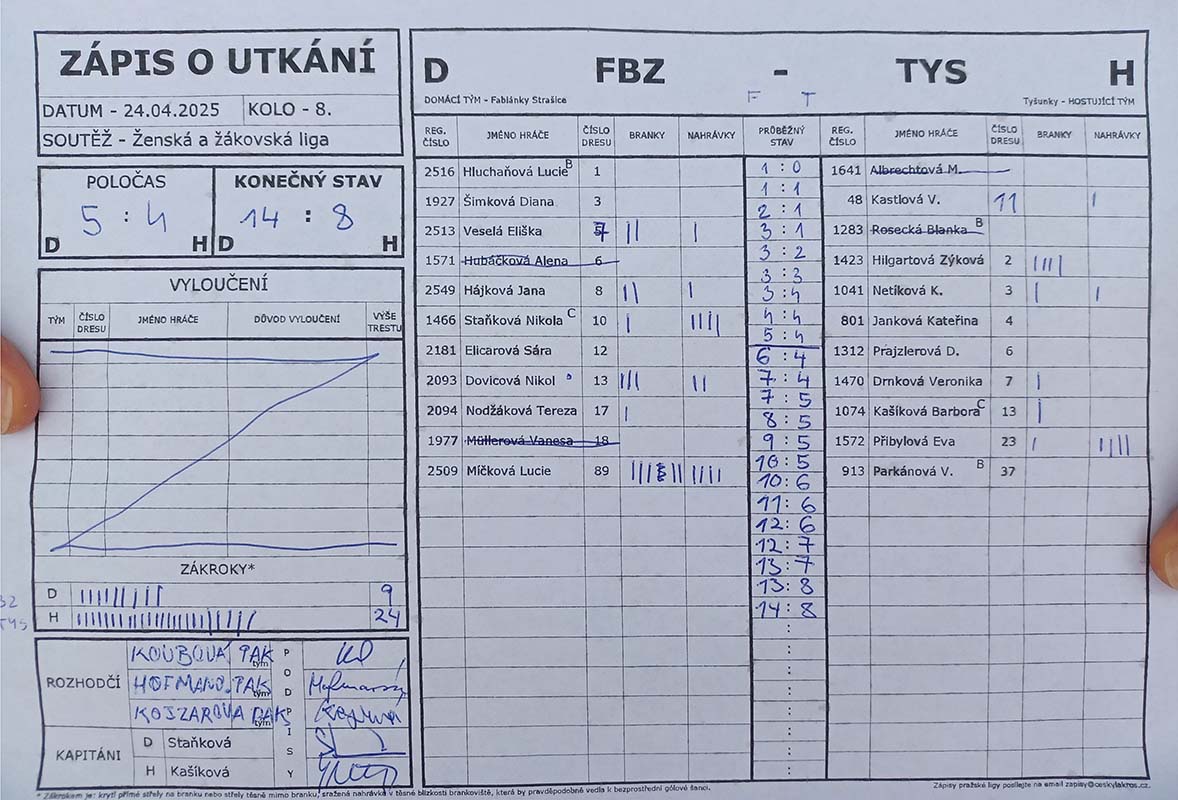 ZÁPIS O UTKÁNÍ
DATUM - 24.04.2025 KOLO - 8.
SOUTĚŽ - Ženská a žákovská liga
POLOČAS
5 : 4
D H
KONEČNÝ STAV
14 : 8
D H
VYLOUČENÍ
TÝM ČÍSLO DRESU JMÉNO HRÁČE DŮVOD VYLOUČENÍ VÝŠE TRESTU
ZÁKROKY*
D 9
H 24
ROZHODČÍ
KOUBOVÁ PAK tým
HOFMANO. PAK tým
KOJZAROVA PAK tým
PODPISY
KAPITÁNI
D Staňková
H Kašíková
D FBZ - TYS H
DOMÁCÍ TÝM - Fablánky Strašice F T Tyšunky - HOSTUJÍCÍ TÝM
REG. ČÍSLO JMÉNO HRÁČE ČÍSLO DRESU BRANKY NAHRÁVKY
2516 Hluchaňová Lucie B 1
1927 Šimková Diana 3
2513 Veselá Eliška 7 || |
1571 Hubáčková Alena 6
2549 Hájková Jana 8 || |
1466 Staňková Nikola C 10 | ||||
2181 Elicarová Sára 12
2093 Dovicová Nikol 13 ||| ||
2094 Nodžáková Tereza 17 |
1977 Müllerová Vanesa 18
2509 Míčková Lucie 89
PRŮBĚŽNÝ STAV
1 : 0
1 : 1
2 : 1
3 : 1
3 : 2
3 : 3
3 : 4
4 : 4
5 : 4
6 : 4
7 : 4
7 : 5
8 : 5
9 : 5
10 : 5
10 : 6
11 : 6
12 : 6
12 : 7
13 : 7
13 : 8
14 : 8
REG. ČÍSLO JMÉNO HRÁČE ČÍSLO DRESU BRANKY NAHRÁVKY
1641 Albrechtová M.
48 Kastlová V. 11 |
1283 Rosecká Blanka B
1423 Hilgartová Zýková 2 ||||
1041 Netíková K. 3 | |
801 Janková Kateřina 4
1312 Prajzlerová D. 6
1470 Drnková Veronika 7 |
1074 Kašíková Barbora C 13 |
1572 Přibylová Eva 23 | ||||
913 Parkánová V. B 37
* Zákrokem je: krytí přímé střely na branku nebo střely těsně mimo branku, sražená nahrávka v těsné blízkosti brankoviště, která by pravděpodobně vedla k bezprostřední gólové šanci.
Zápisy pražské ligy posílejte na email zapisy@ceskylakros.cz.